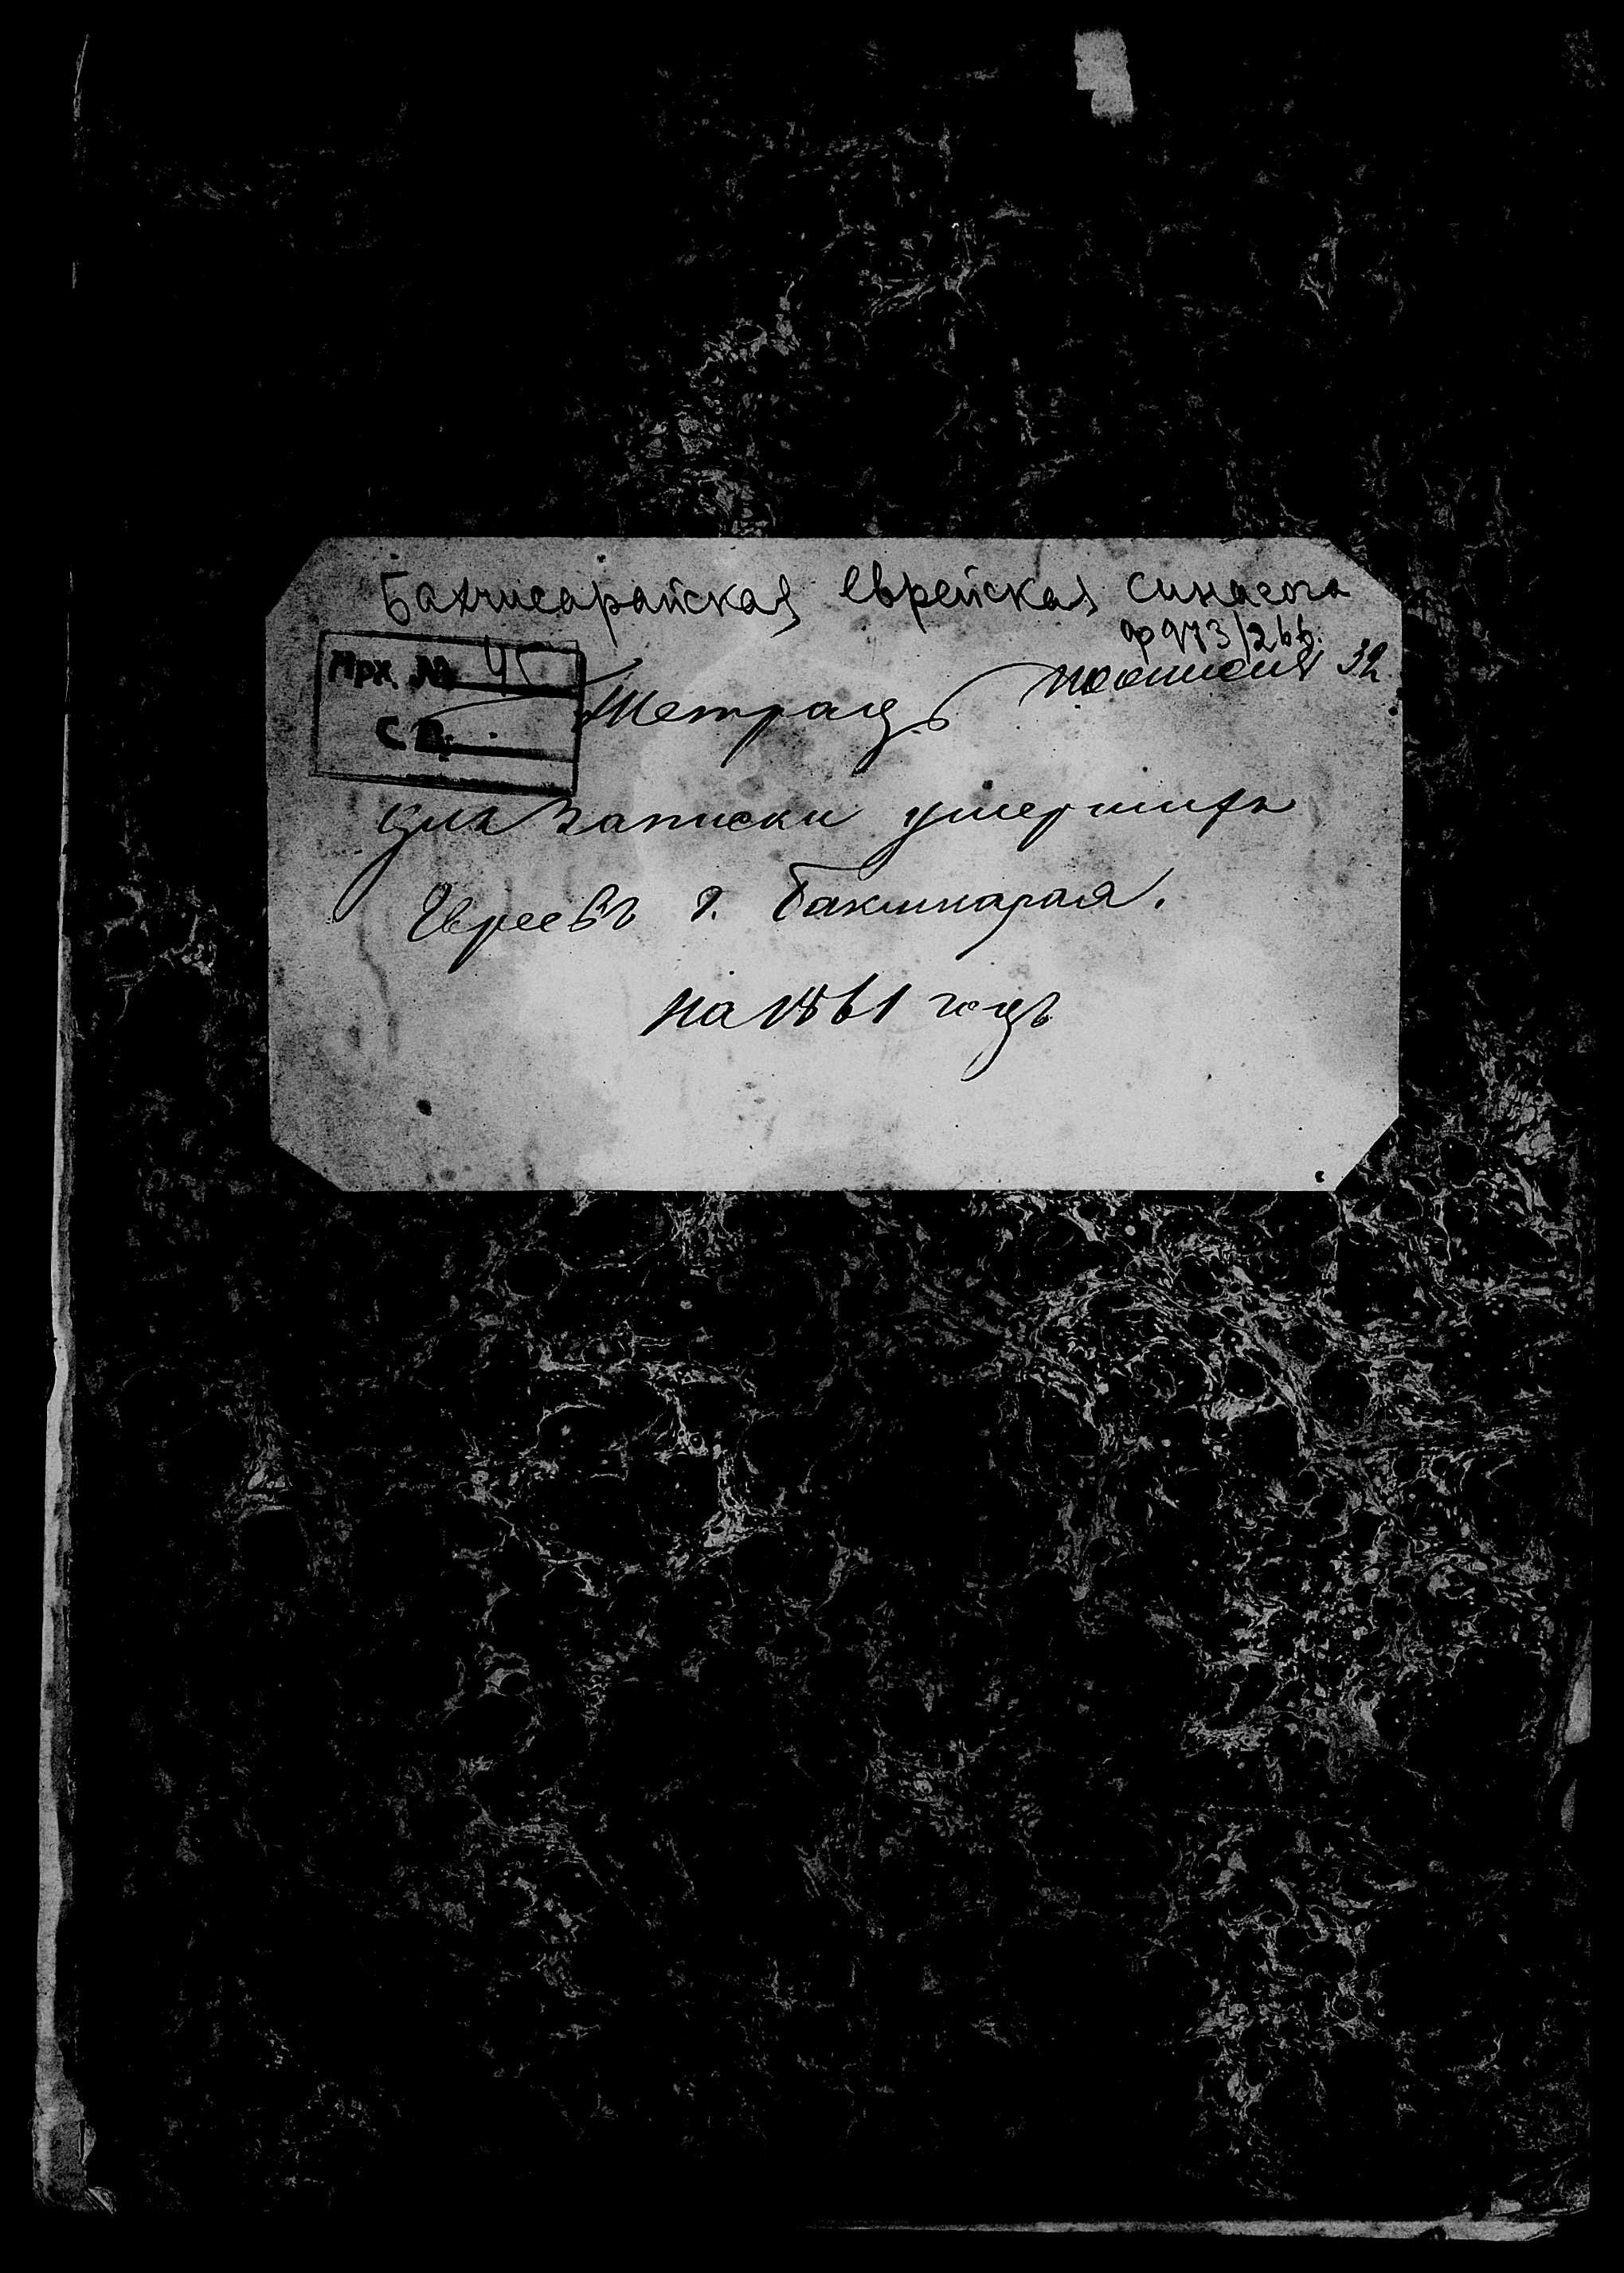 Бахчисарайская еврейская синагога
ф 973/266.
Арх. №
С. П.
Тетрадь
32
для записки умершихъ
Евреевъ г. Бахчисарая.
на 1861 годъ